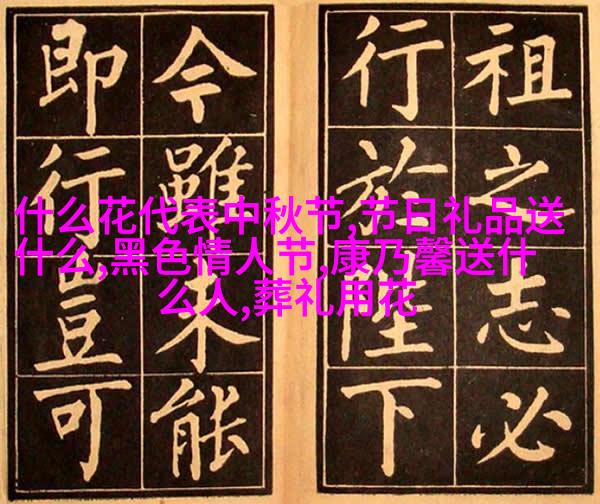 祖之志必
行於陛下
今雖未能
即行豈可
什么花代表中秋节,节日礼品送
什么,黑色情人节,康乃馨送什
么人,葬礼用花